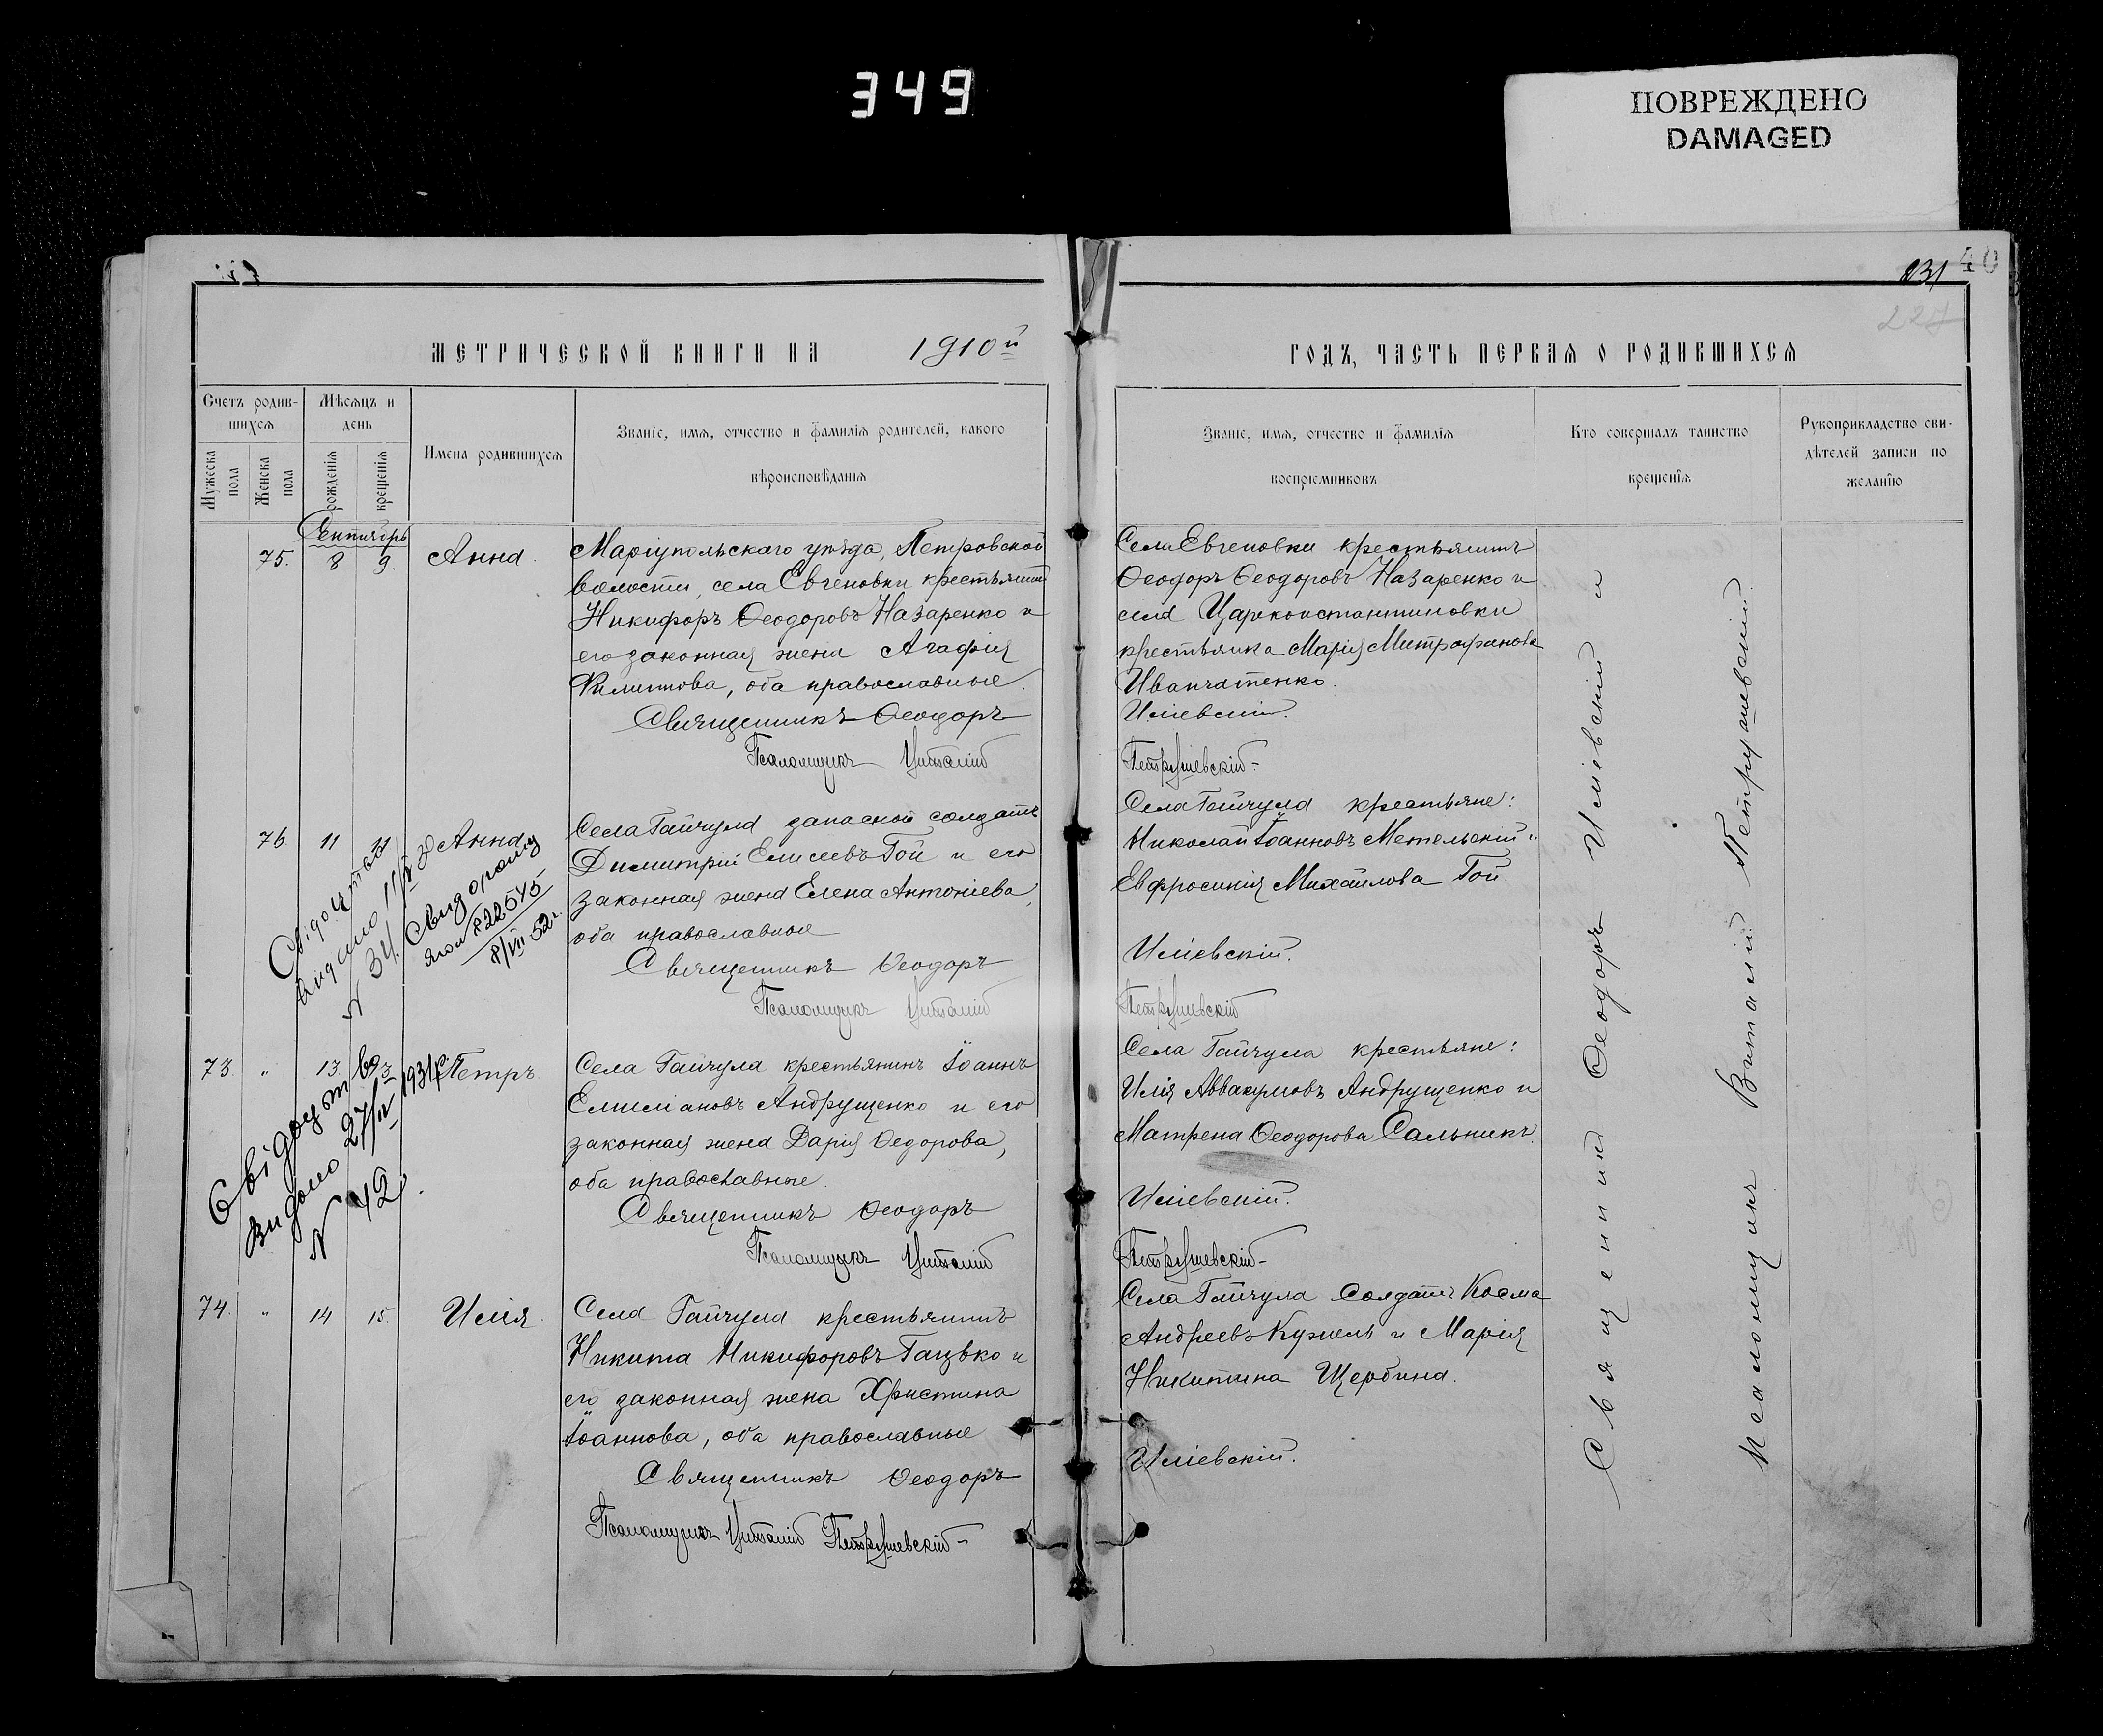 349
ПОВРЕЖДЕНО
DAMAGED
831
40
227
МЕТРИЧЕСКОЙ КНИГИ НА 1910й
ГОДЪ, ЧАСТЬ ПЕРВАЯ О РОДИВШИХСЯ
Счетъ родив-
шихся
Мужеска
пола
Женска
пола
Мѣсяцъ и
день
рожденія
крещенія
Имена родившихся
Званіе, имя, отчество и фамилія родителей, какого
вѣроисповѣданія
Званіе, имя, отчество и фамилія
воспріемниковъ
Кто совершалъ таинство
крещенія
Рукоприкладство сви-
дѣтелей записи по
желанію
Сентябрь
75. 8 9. Анна.
Маріупольскаго уѣзда, Петровской
волости, села Евгеновки крестьянинъ
Никифоръ Ѳеодоровъ Назаренко и
его законная жена Агафія
Филиппова, оба православные.
Священникъ Ѳеодоръ
Псаломщикъ Виталій
Села Евгеновки крестьянинъ
Ѳеодоръ Ѳеодоровъ Назаренко и
села Цареконстантиновки
крестьянка Марія Митрофанова
Иванчатенко.
Иліевскій.
Петрушевскій
76 11 11 Анна
Села Гайчула запасной солдатъ
Димитрій Елисеевъ Гой и его
законная жена Елена Антоніева,
оба православные
Священникъ Ѳеодоръ
Псаломщикъ Виталій
Села Гайчула крестьяне:
Николай Іоанновъ Метельскій и
Евфросинія Михайлова Гой.
Иліевскій.
Петрушевскій
Свідоцтво
видано
№ 34.
8/VII 52 г.
73. " 13. 13 Петръ.
Села Гайчула крестьянинъ Іоаннъ
Емиліановъ Андрущенко и его
законная жена Дарія Ѳедорова,
оба православные.
Священникъ Ѳеодоръ
Псаломщикъ Виталій
Села Гайчула крестьяне:
Илія Аввакумовъ Андрущенко и
Матрена Ѳеодорова Сальникъ.
Иліевскій.
Петрушевскій
Свідоцтво
видано 27/IV 1931 р.
№ 42.
74. " 14 15. Илія.
Села Гайчула крестьянинъ
Никита Никифоровъ Гацько и
его законная жена Христина
Іоаннова, оба православные
Священникъ Ѳеодоръ
Псаломщикъ Виталій Петрушевскій
Села Гайчула солдатъ Косма
Андреевъ Кужель и Марія
Никитина Щербина.
Иліевскій.
Священникъ Ѳеодоръ Иліевскій и
Псаломщикъ Виталій Петрушевскій.